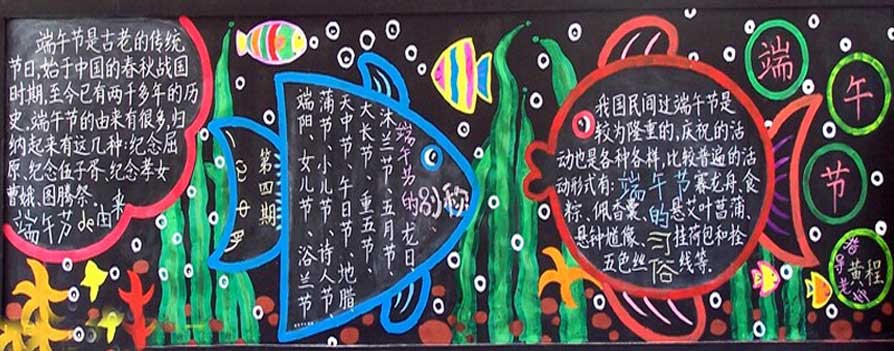 端午节是古老的传统
节日,始于中国的春秋战国
时期,至今已有两千多年的历
史。端午节的由来有很多,归
纳起来有这几种:纪念屈
原、纪念伍子胥、纪念孝女
曹娥、图腾祭。
端午节de由来
第四期
端午节的别称
龙日、
沐兰节、五月节、
大长节、重五节、
天中节、午日节、地腊、
蒲节、小儿节、诗人节、
端阳、女儿节、浴兰节
我国民间过端午节是
较为隆重的,庆祝的活
动也是各种各样,比较普遍的活
动形式有:赛龙舟、食
粽、佩香囊、悬艾叶菖蒲、
悬钟馗像、挂荷包和拴
五色丝线等.
端午节的习俗
端午节
黄程